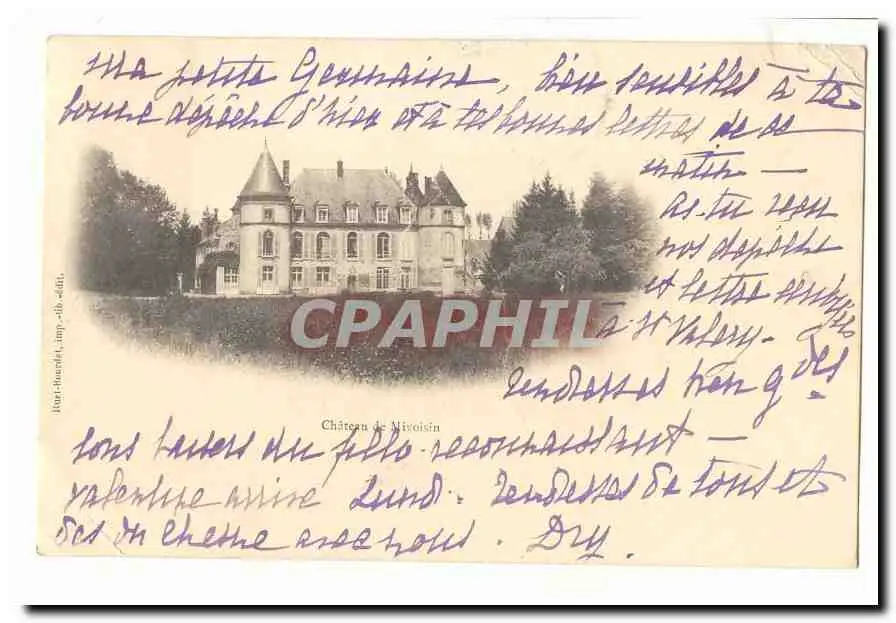 Ma petite Germaine, bien sensibles à ta
bonne dépêche d'hier et à tes bonnes lettres de ce
matin —
as-tu reçu
nos dépêche
et lettre
à St Valery -
Tendresses bien gdes
CPAPHIL
Ruet-Bourdet, imp.-lib.-édit.
Château de Mivoisin
bons baisers du fillo reconnaissant —
Valentine arrive Lundi - Tendresses de tous et
des du Chesne avec nous. Dry.